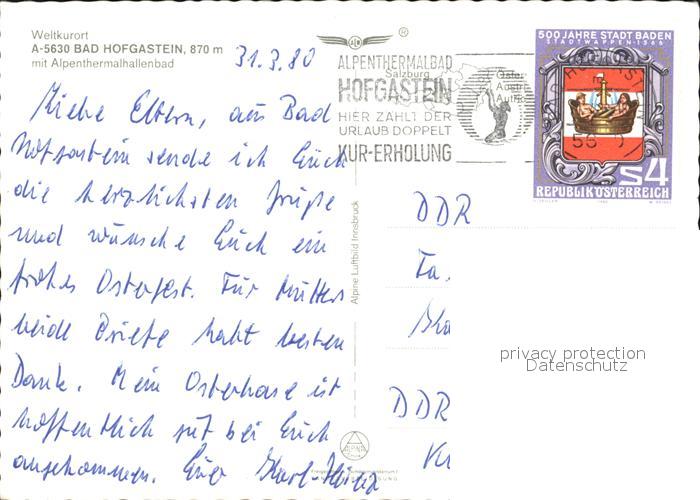 Weltkurort
A-5630 BAD HOFGASTEIN, 870 m
mit Alpenthermalhallenbad
31.3.80
Liebe Eltern, aus Bad
Hofgastein sende ich Euch
die herzlichsten Grüße
und wünsche Euch ein
frohes Osterfest. Für Mutters
beide Briefe habt besten
Dank. Mein Osterhase ist
hoffentlich gut bei Euch
angekommen. Euer Karl-Heinz
Alpine Luftbild Innsbruck
ALPENTHERMALBAD
Salzburg
HOFGASTEIN
HIER ZÄHLT DER
URLAUB DOPPELT
KUR-ERHOLUNG
500 JAHRE STADT BADEN
STADTWAPPEN·1566
S4
REPUBLIK ÖSTERREICH
DDR
Fa.
DDR
ALPINA
privacy protection
Datenschutz